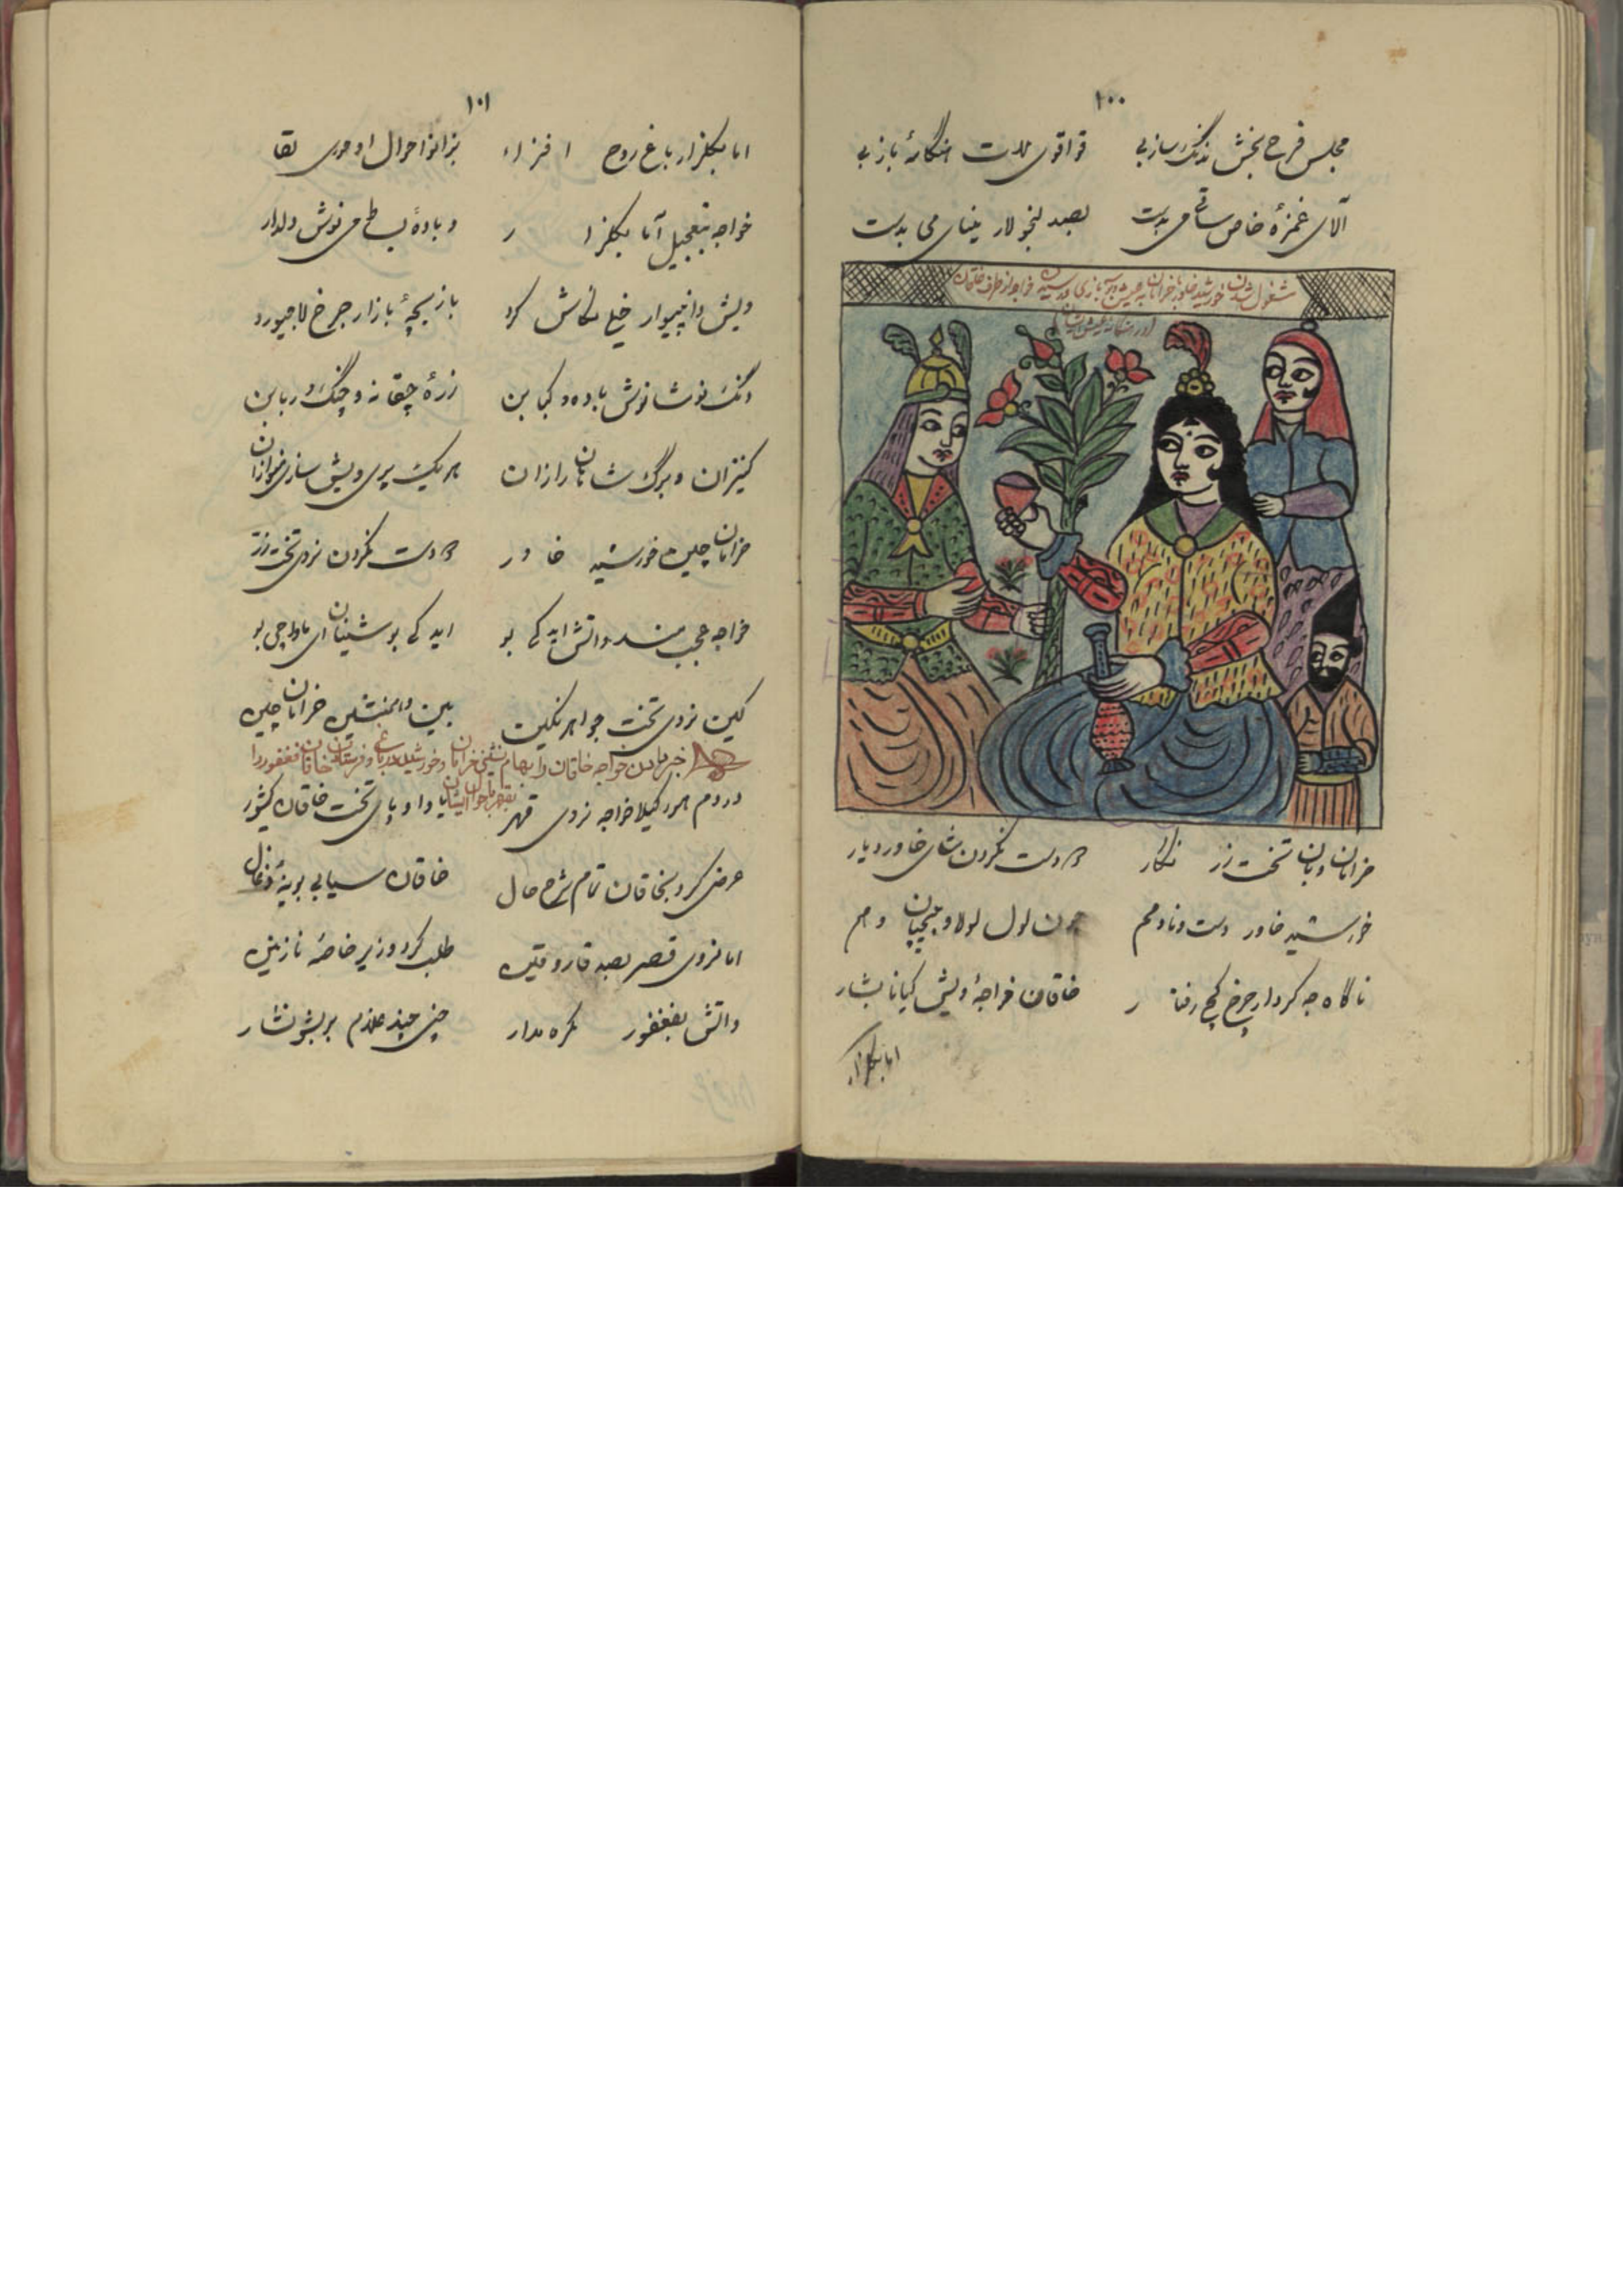 ۱۰۰
مجلس فرح بخش نه نگ سازبی قواقوی مدت هنگامهٔ بازبی
آلای غمزهٔ خاص ساقی می بدست بصد لنجولار مینای می بدست
مشغول شدن خورشید خاور با خرامان به عیش و بازی و رسیدن خواجه از طرف خاقان
خرامان و بان تخت زر نگار دست نکردن شای خاور دیار
خورشید خاور دست ونا و مم چون لول لولاو پیچیان و هم
ناگاه جه کردار چرخ کج رفتار خاقان خواجهٔ ویش کیانا بشار
اما بگلزار
۱۰۱
اما بگلزار باغ روح افزاء بزانو احوال او حوری لقا
خواجه بتعجیل آما بگلزار و بادهٔ بط می نوش ولدار
ویش دا نه دیوار خیلی نگاش کرد بازیچهٔ بازار چرخ لاجیورد
دنگ نوشانوش باده و کبابن زرهٔ چقانه و چنگ و ربابن
کنیزان و برگ شاهان رازان هر یک پری ویش سازی نوازان
خرامان چین خورشید خاور دست نکردن نزوی تخت زر
خواجه عجب مند واتش اید کی بو اید کی بو شینان ای ماواچی بو
کین نزوی تخت جواهر نگین بین و همنشین خرامان چین
خبر دادن خواجه خاقان را بهام نشینی خرامان و خورشید در باغ و فرستادن خاقان فغفور را
دردم هورگیلا خواجه نزوی قهر یاوا و پای تخت خاقان کشور
عرض کرد بخاقان تمام شرح حال خاقان سیابی بوینهٔ ذغال
اما نزوی قصر بصد قار و قین طلب کرد وزیر خاصهٔ نازنین
واتش بفغفور مکره مدار چنی چند ملازم بریشو نشار